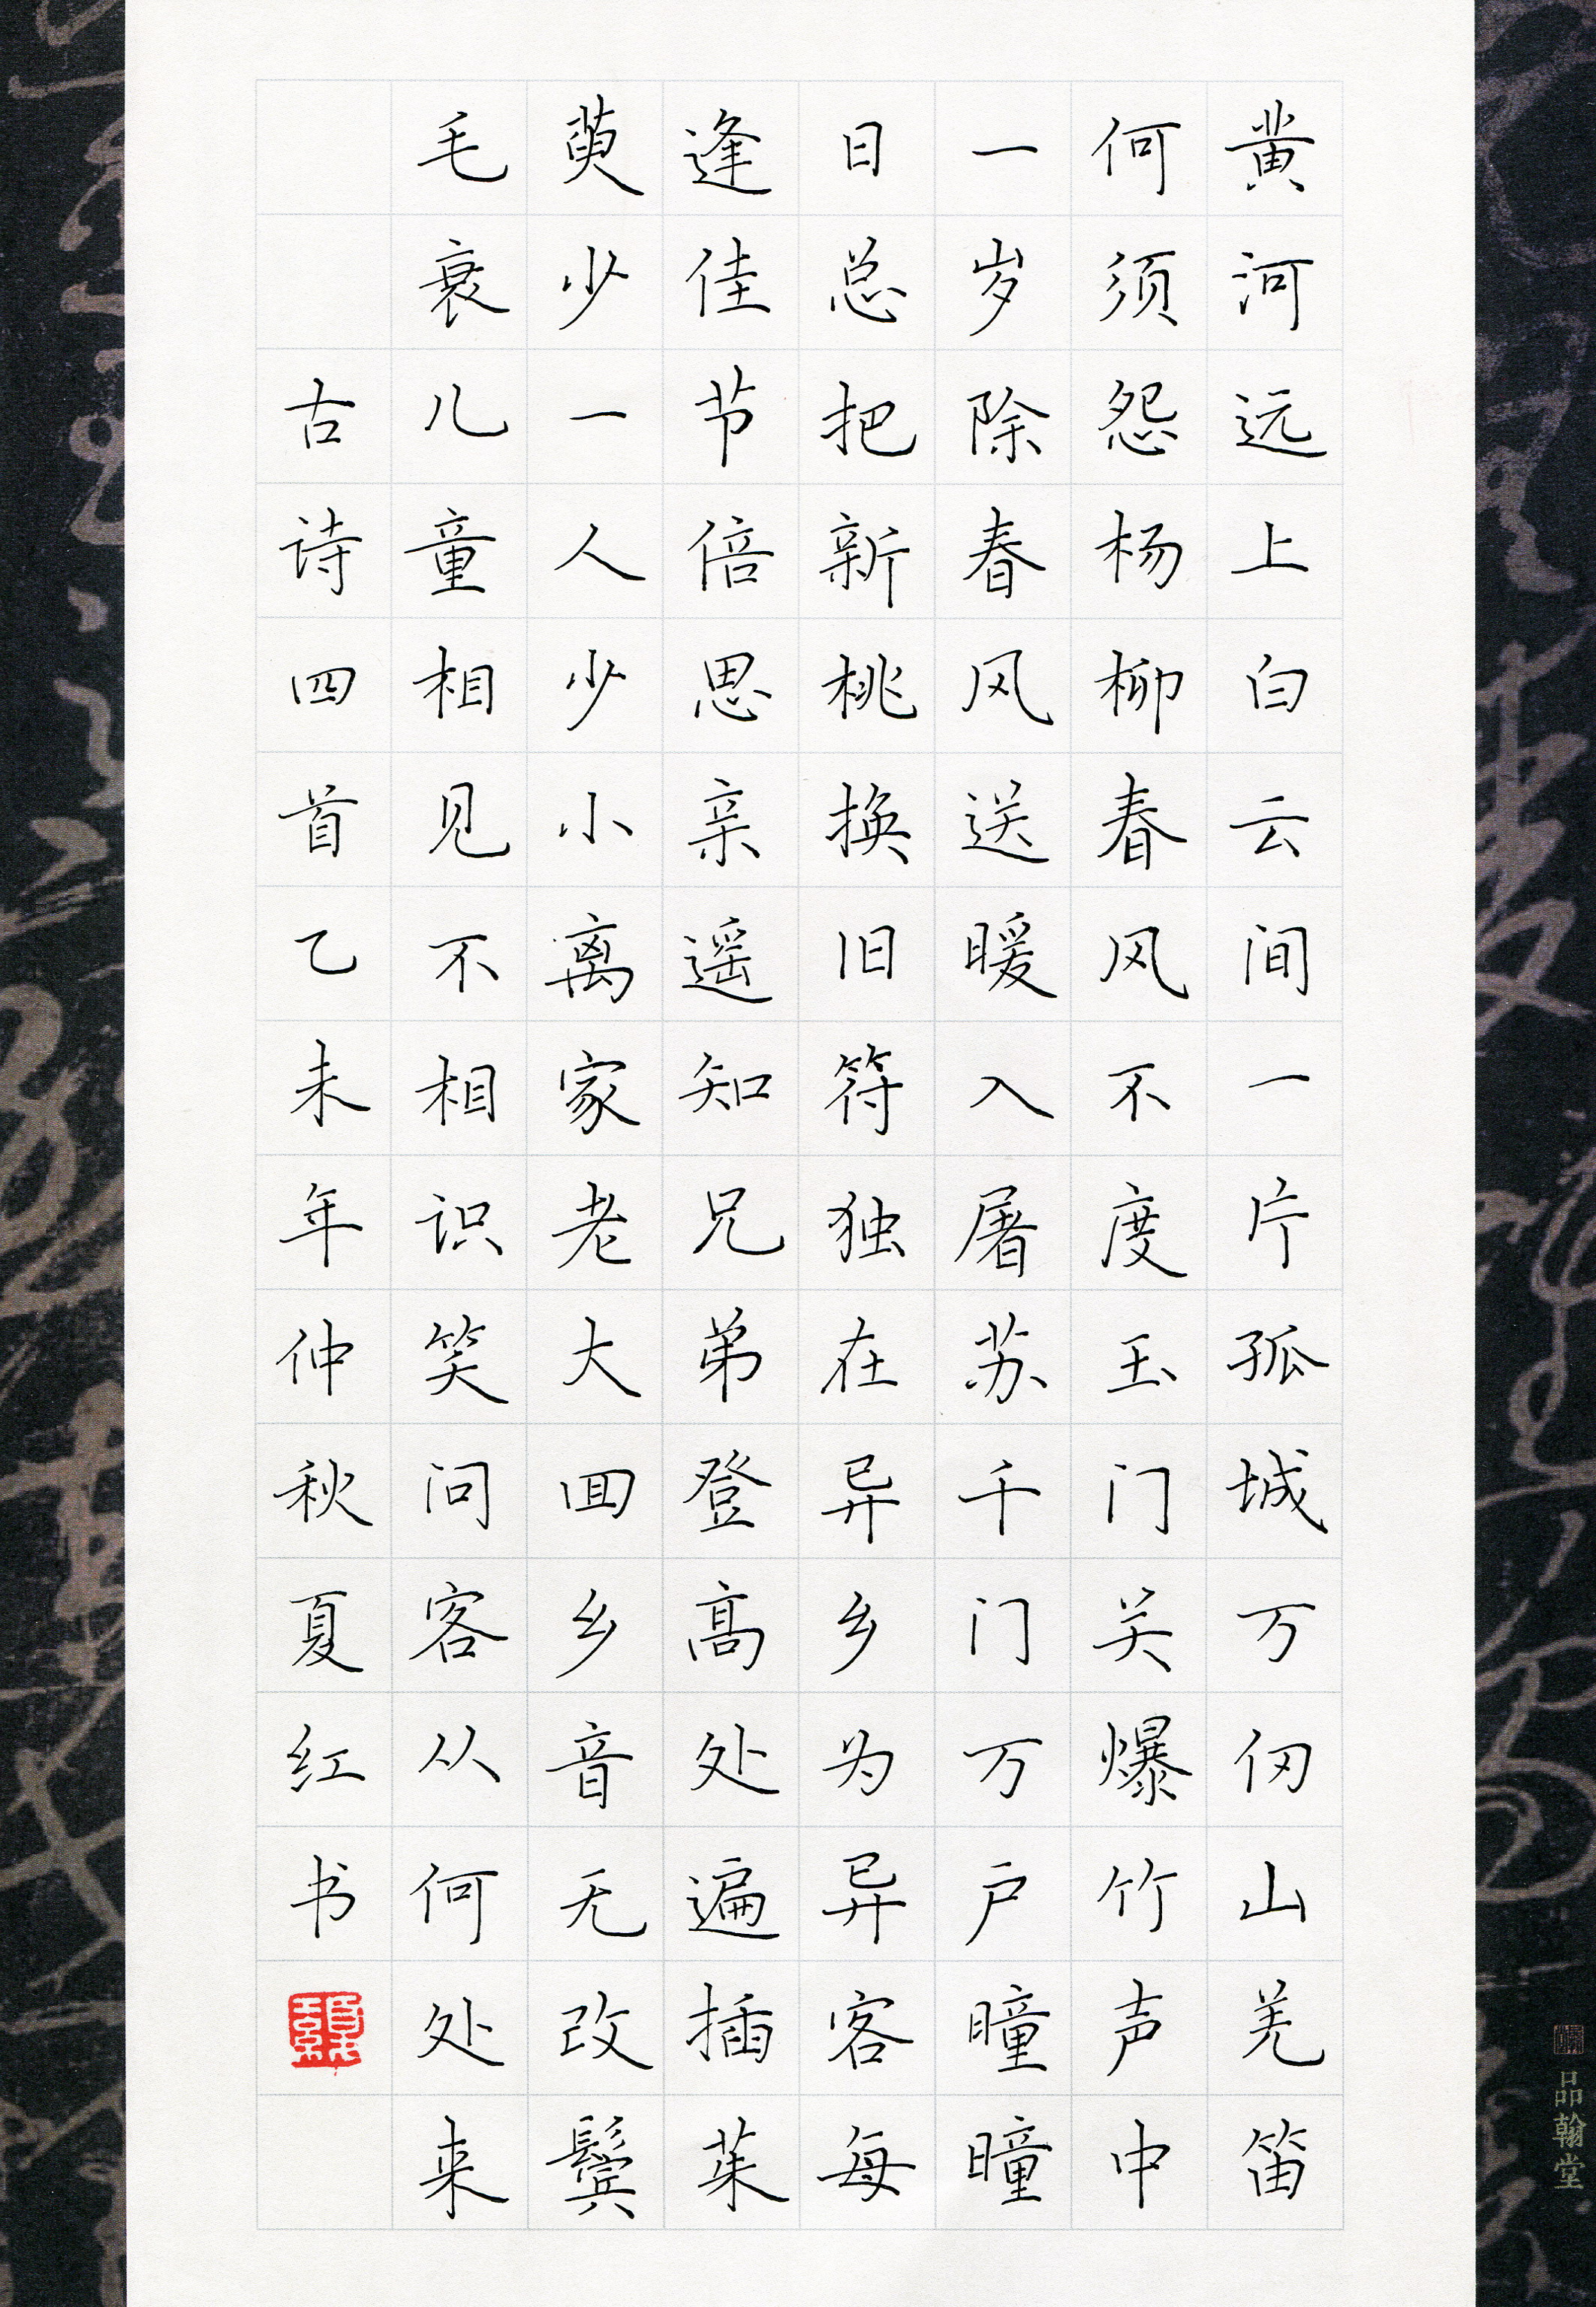 黄河远上白云间一片孤城万仞山羌笛
何须怨杨柳春风不度玉门关爆竹声中
一岁除春风送暖入屠苏千门万户曈曈
日总把新桃换旧符独在异乡为异客每
逢佳节倍思亲遥知兄弟登高处遍插茱
萸少一人少小离家老大回乡音无改鬓
毛衰儿童相见不相识笑问客从何处来
古诗四首乙未年仲秋夏红书
品翰堂